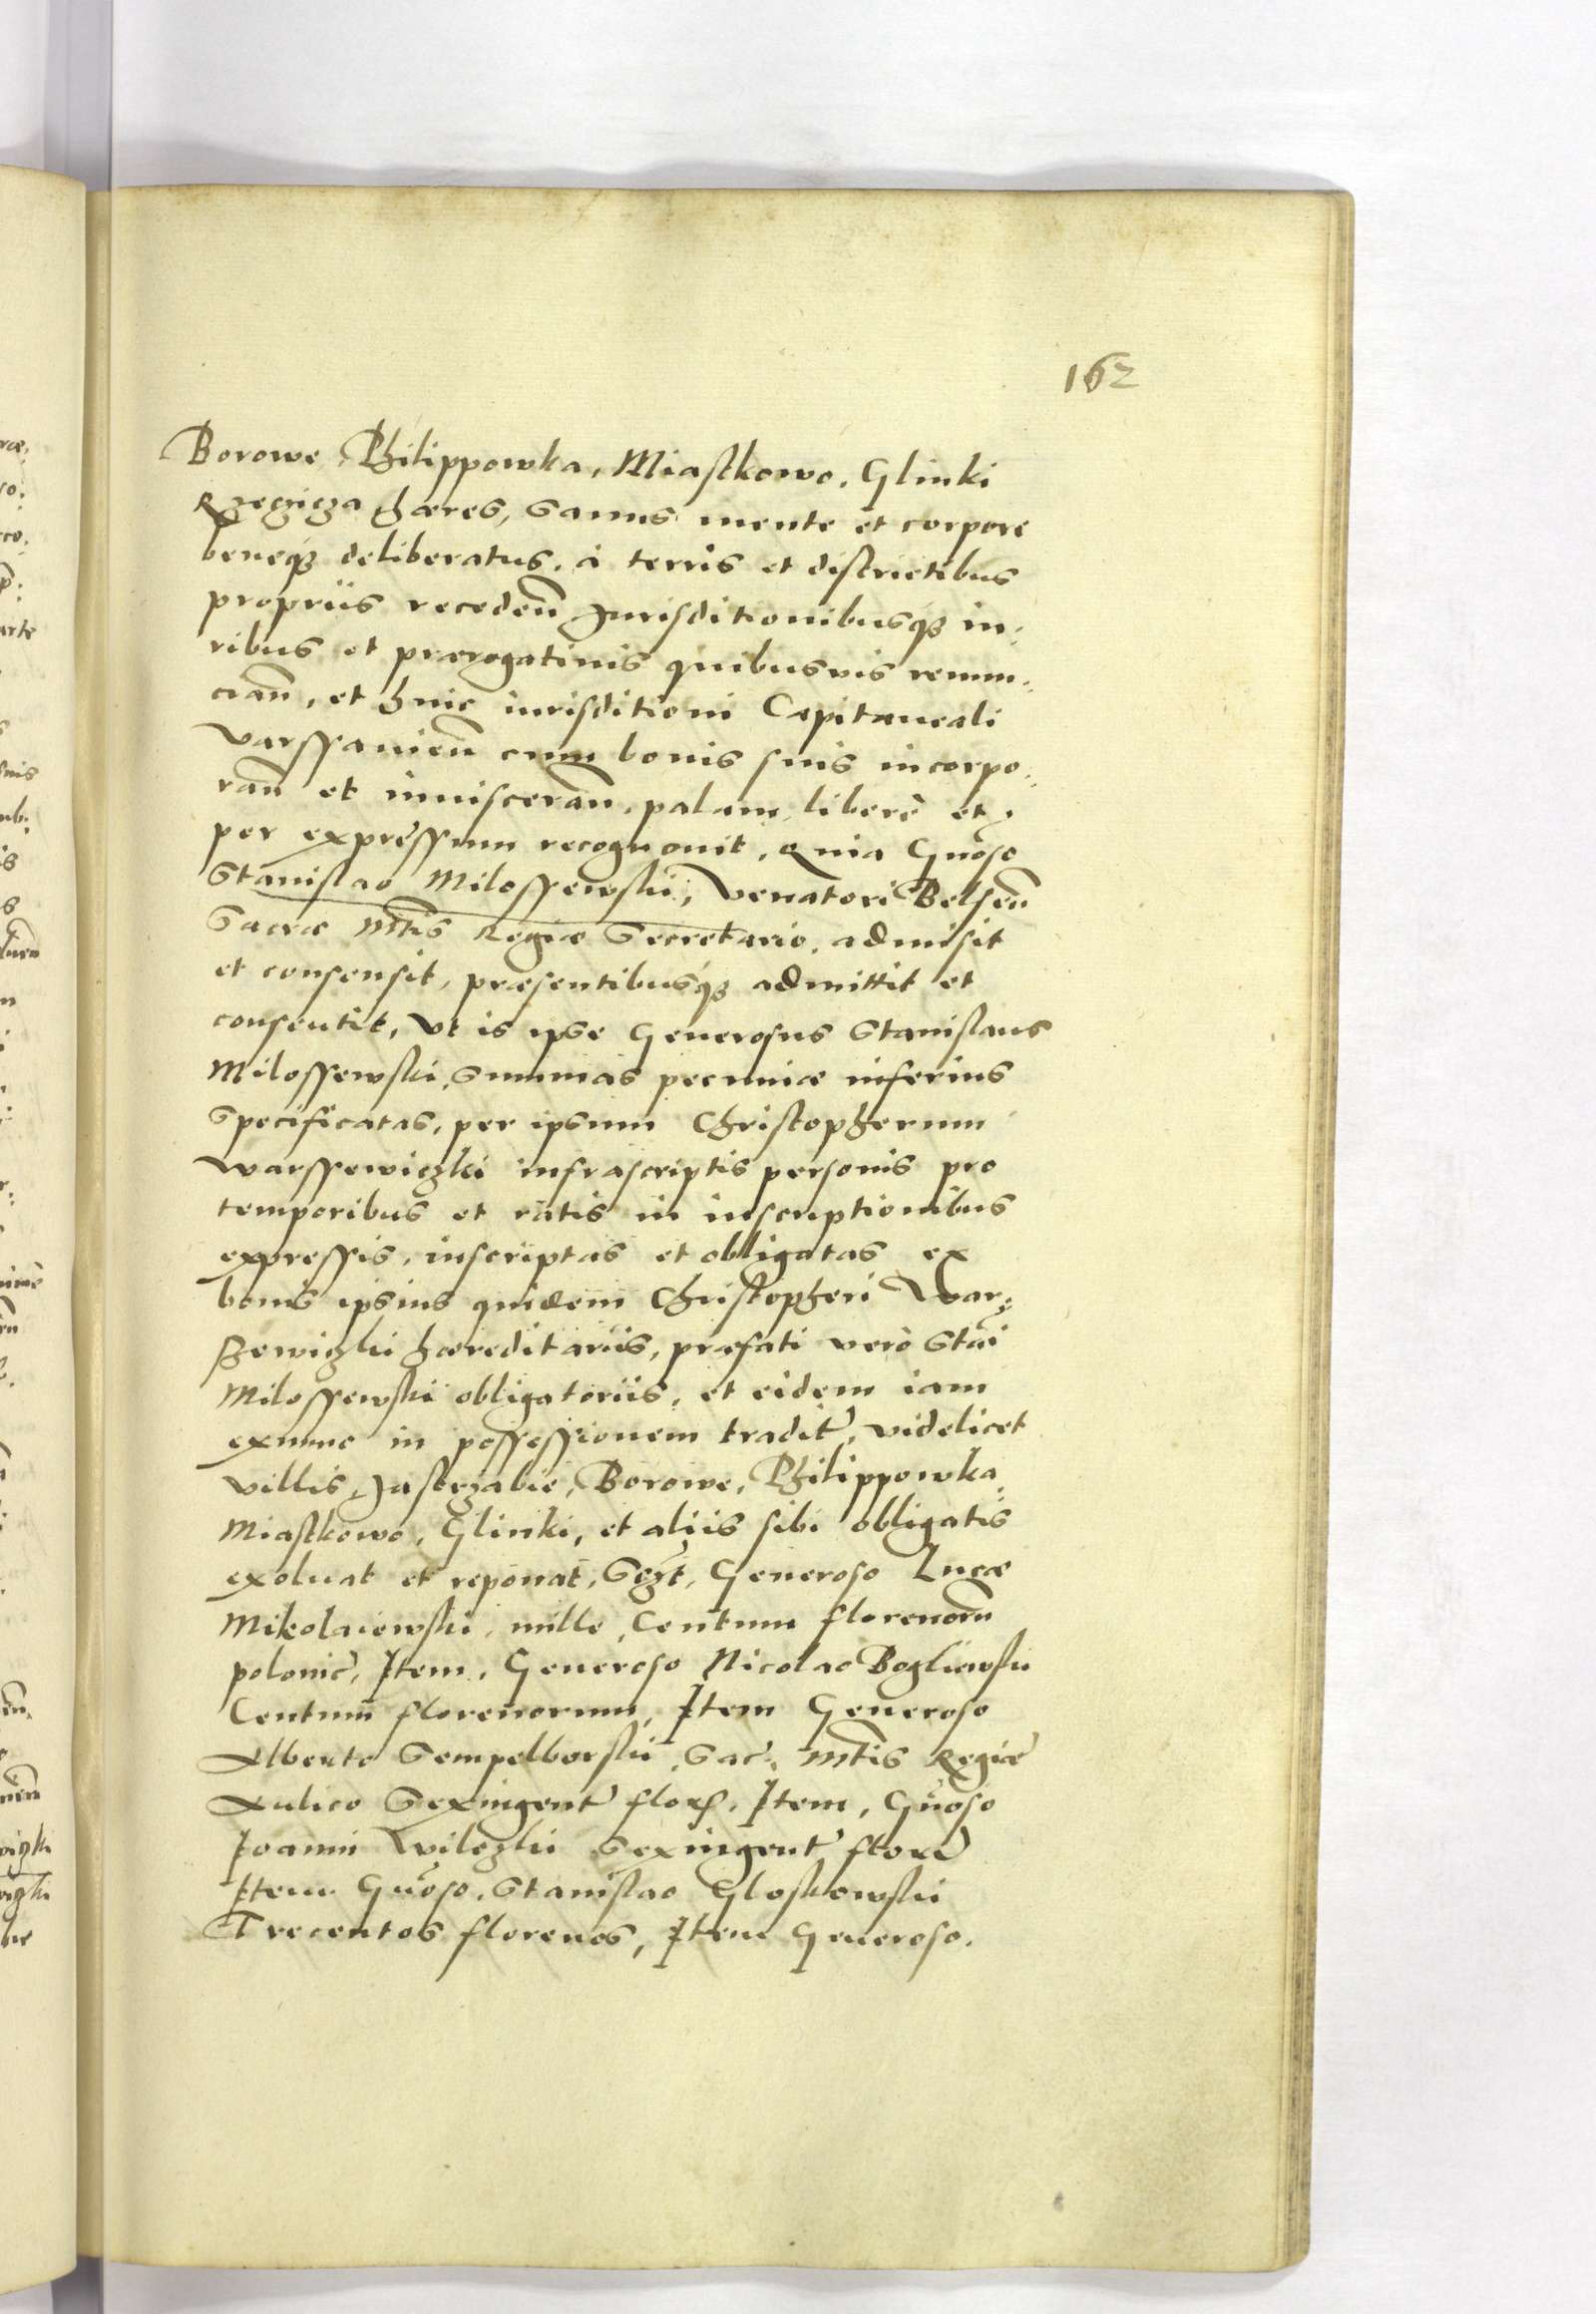 162
Borowe, Philippowka, Miastkowo, Glinki
Rzeczicza hæres, Sanus mente et corpore
beneq3 deliberatus, à terris et districtibus
propriis recedeñ Jurisditionibusq3 iu:
ribus et prærogatiuis quibusuis renun:
ciañ, et huic iurisditioni Capitaneali
Varssauieñ cum bonis suis incorpo:
rañ et inuisceran̄, palam, liberè et
per expressum recognouit, Quia Gñoso
Stanislao Milossewski, Venatori Belseñ
Sacræ Mtis Regiæ Secretario, admisit
et consensit, præsentibusq3 admittit et
consentit, Vt is ipse Generosus Stanislaus
Milossewski, Summas pecuniæ inferius
Specificatas, per ipsum Christopherum
Warssewiczki infrascriptis personis pro
temporibus et ratis in inscriptionibus
expressis, inscriptas et obligatas ex
bonis ipsius quidem Christopheri War:
szewiczki hæreditariis, præfati verò Stãi
Milossewski obligatoriis, et eidem iam
exnunc in possessionem tradit̃, videlicet
villis, Jastrzabie, Borowe, Philippowka,
Miastkowo, Glinki, et aliis sibi obligatis
exoluat et reponat, Generoso Lucæ
Mikolaiewski, mille, Centum florenorũ
polonic̃, Item, Generoso Nicolao Bogliewski
Centum florenorum, Item Generoso
Alberto Sempelborski, Sac̃: Mtis Regiæ
Aulico Sexingent̃ flor, Item, Gñoso
Joanni Wilczki Sexingent̃ flore
Item Gñoso, Stanislao Gloskowski
Trecentos florenos, Item Generoso.